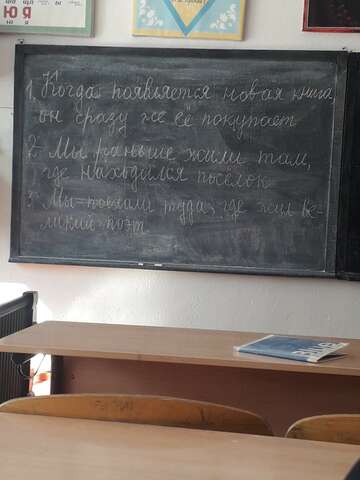 Я Ю
1. Когда появляется новая книга,
он сразу же её покупает
2. Мы раньше жили там,
где находился посёлок
3. Мы поехали туда, где жил ве-
ликий поэт